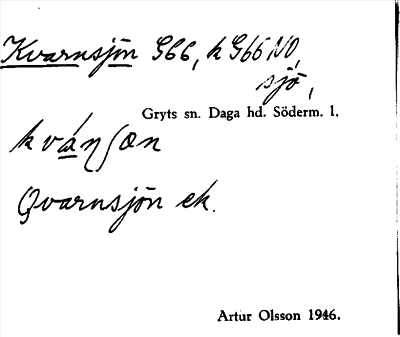 Kvarnsjön G66, h G66 NO,
sjö,
Gryts sn. Daga hd. Söderm. l.
kváηʃœn
Qvarnsjön ek.
Artur Olsson 1946.